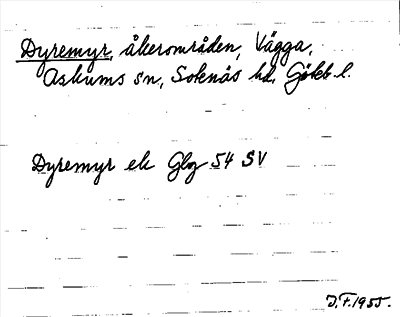 Dyremyr, åkerområden, Vägga,
Askums sn, Sotenäs hd, Götebl.
Dyremyr ek Glg 54 SV
J.F. 1955.